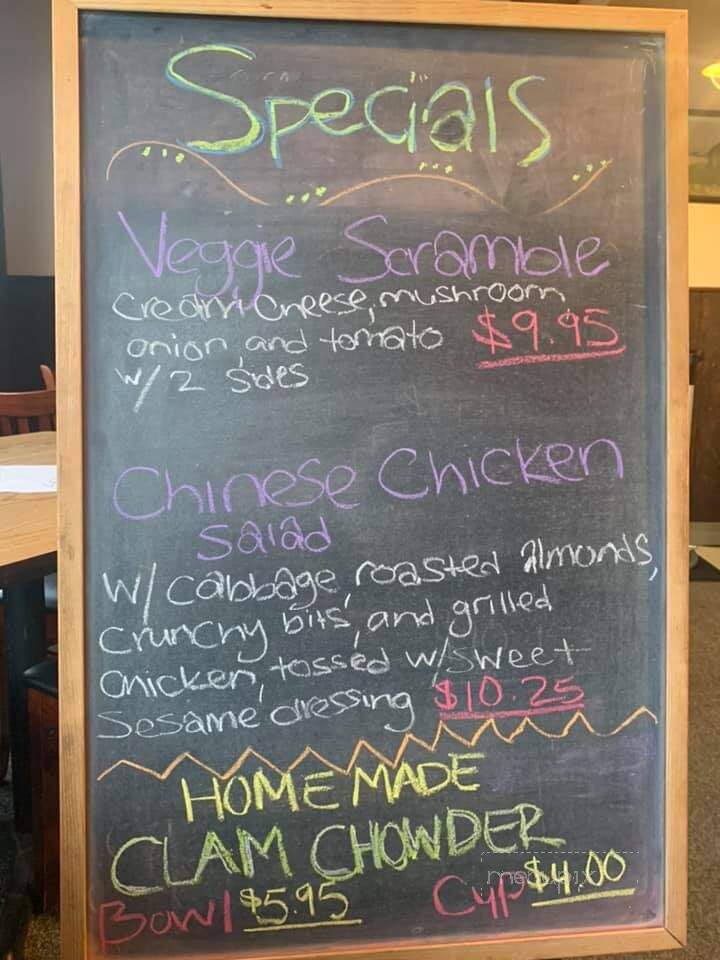 Specials
Veggie Scramble
Cream Cheese, mushroom
onion, and tomato $9.95
w/ 2 sides
Chinese Chicken
Salad
w/ cabbage, roasted almonds,
crunchy bits, and grilled
chicken, tossed w/ sweet
sesame dressing $10.25
HOMEMADE
CLAM CHOWDER
Bowl $5.95 Cup $4.00
menupix